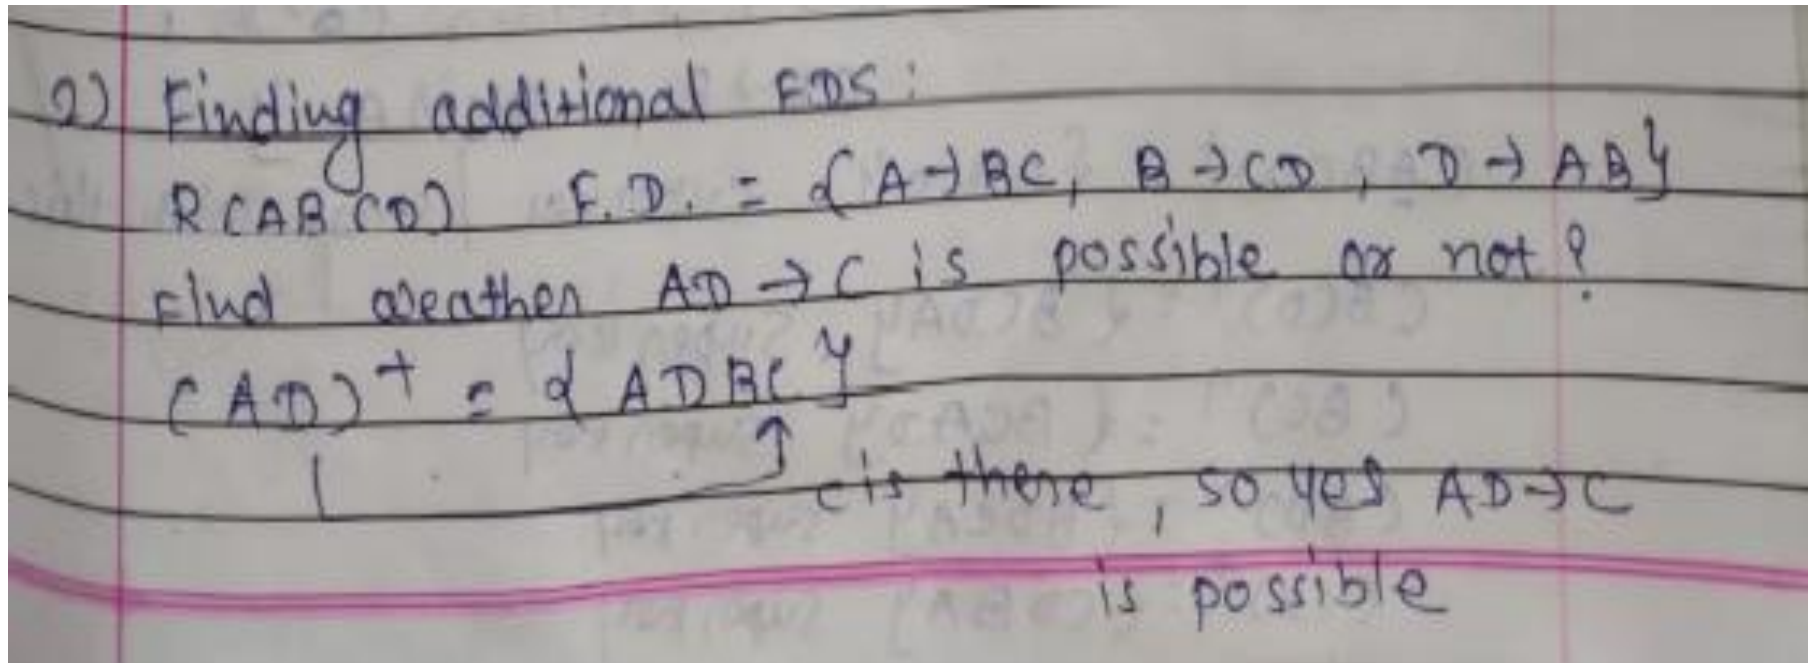 2) Finding additional FDS:
R(ABCD) F.D. = {A→BC, B→CD, D→AB}
Find weather AD→C is possible or not?
(AD)+ = {ADBC}
c is there, so yes AD→C
is possible